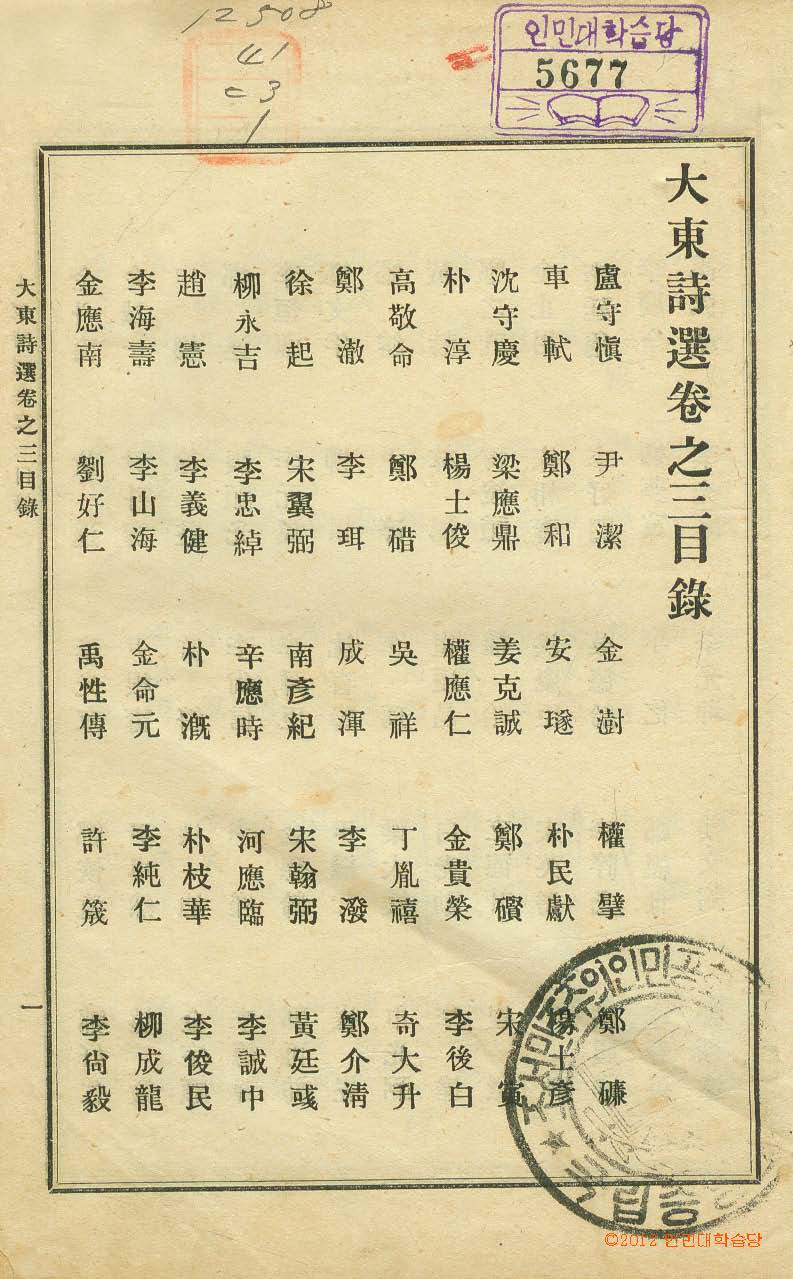 12508
41
ㄷ3
1
인민대학습당
5677
大東詩選卷之三目錄
盧守愼 尹潔 金澍 權擘 鄭𥖝
車軾 鄭和 安璲 朴民獻 楊士彥
沈守慶 梁應鼎 姜克誠 鄭礥 宋寅
朴淳 楊士俊 權應仁 金貴榮 李後白
高敬命 鄭碏 吳祥 丁胤禧 奇大升
鄭澈 李珥 成渾 李潑 鄭介淸
徐起 宋翼弼 南彥紀 宋翰弼 黃廷彧
柳永吉 李忠綽 辛應時 河應臨 李誠中
趙憲 李義健 朴漑 朴枝華 李俊民
李海壽 李山海 金命元 李純仁 柳成龍
金應南 劉好仁 禹性傳 許筬 李尙毅
大東詩選卷之三目錄
一
조선민주주의인민공
©2012 인민대학습당